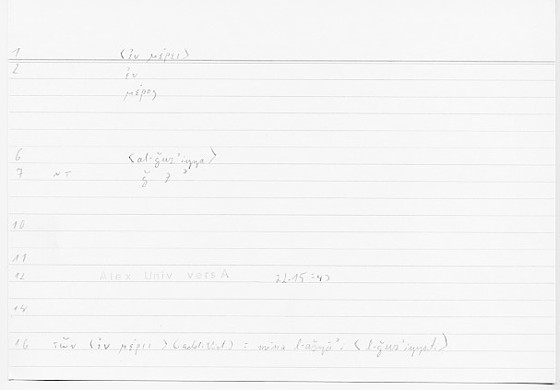 1 ⟨ἐν μέρει⟩
2 ἐν
μέρος
6 ⟨al-ǧuzʾiyya⟩
7 NT ǧ z ʾ
10
11
12 Alex Univ vers A 22.15 = 43
14
16 τῶν ⟨ἐν μέρει⟩ (add. Vict) = mina l-ašyāʾi ⟨l-ǧuzʾiyyati⟩